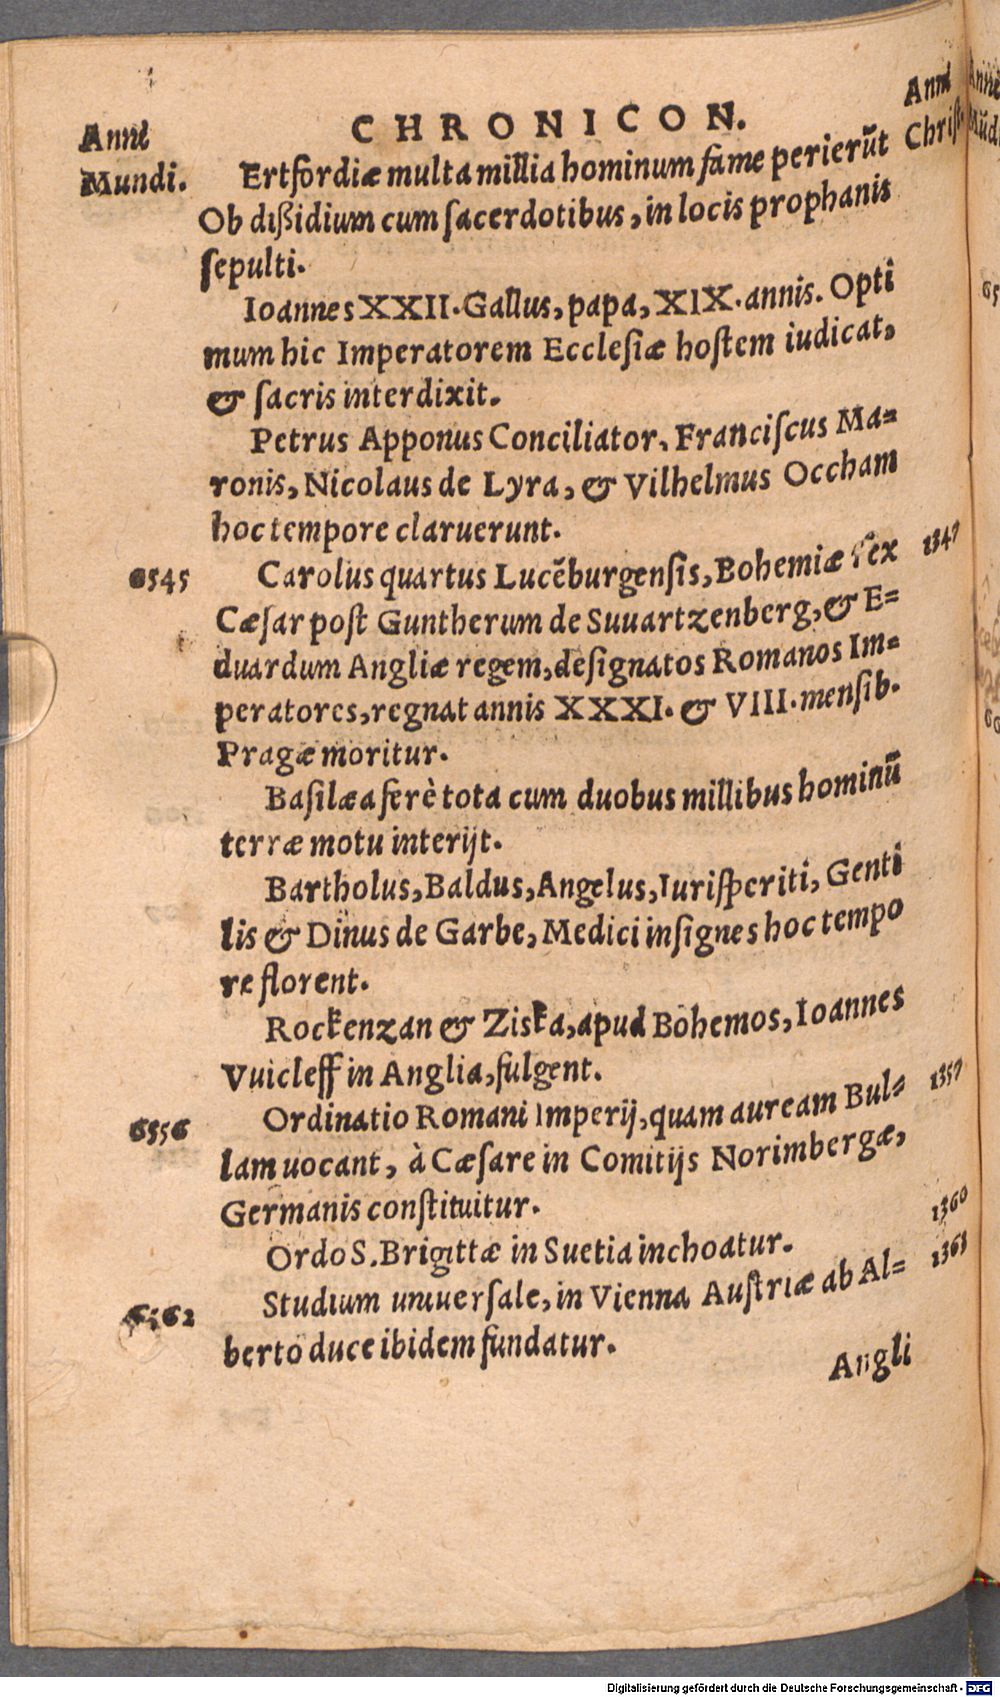 Anni
Mundi.
CHRONICON.
Anni
Christ.
Ertfordiæ multa millia hominum fame perierũt
Ob dißidium cum ſacerdotibus, in locis prophanis
ſepulti.
Ioannes XXII. Gallus, papa, XIX. annis. Opti
mum hic Imperatorem Eccleſiæ hoſtem iudicat,
& ſacris interdixit.
Petrus Apponus Conciliator, Franciſcus Ma-
ronis, Nicolaus de Lyra, & Vilhelmus Occham
hoc tempore claruerunt.
6545 Carolus quartus Lucẽburgenſis, Bohemiæ rex 1347
Cæſar poſt Guntherum de Suuartzenberg, & E-
duardum Angliæ regem, deſignatos Romanos Im-
peratores, regnat annis XXXI. & VIII. menſib.
Pragæ moritur.
Baſilæa ferè tota cum duobus millibus hominũ
terræ motu interijt.
Bartholus, Baldus, Angelus, Iuriſperiti, Genti
lis & Dinus de Garbe, Medici inſignes hoc tempo
re florent.
Rockenzan & Ziska, apud Bohemos, Ioannes
Vuicleff in Anglia, fulgent.
6556 Ordinatio Romani Imperij, quam auream Bul- 1357
lam uocant, à Cæſare in Comitijs Norimbergæ,
Germanis conſtituitur.
Ordo S. Brigittæ in Suetia inchoatur. 1360
6562 Studium uniuerſale, in Vienna Auſtriæ ab Al- 1363
berto duce ibidem fundatur.
Angli
Digitalisierung gefördert durch die Deutsche Forschungsgemeinschaft - DFG